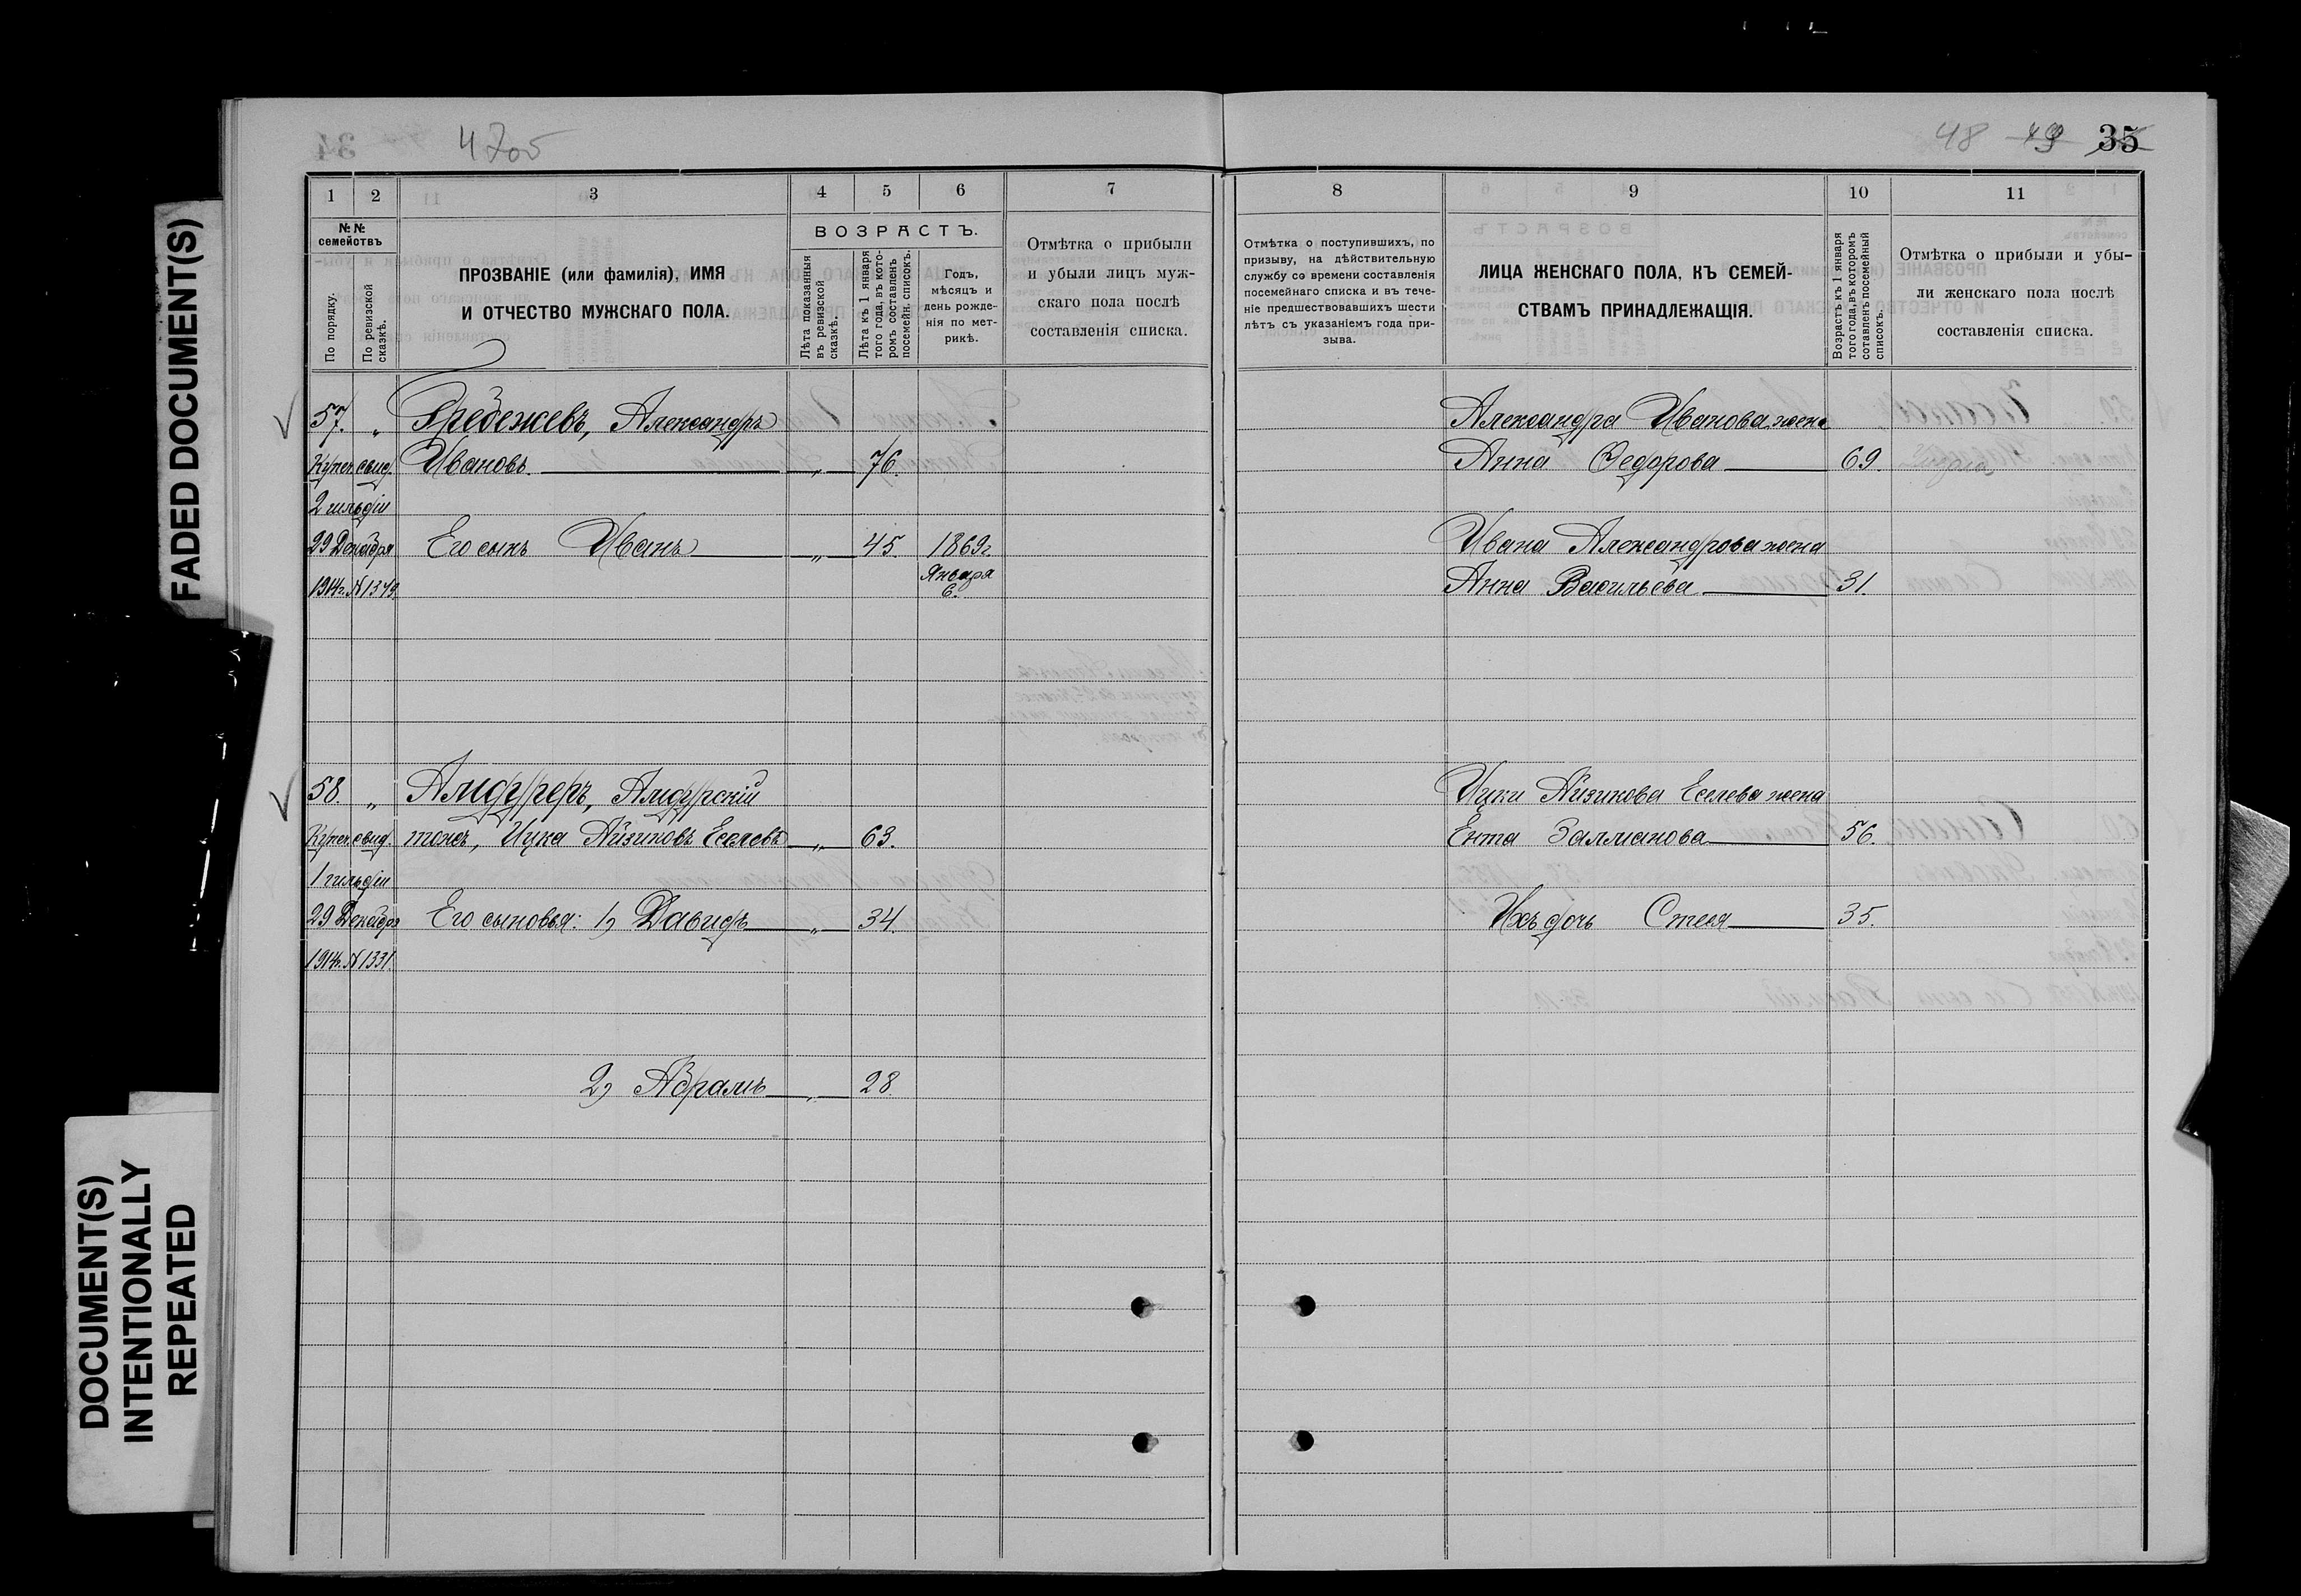 FADED DOCUMENT(S)
DOCUMENT(S)
INTENTIONALLY
REPEATED
48 49 35
1 2 3 4 5 6 7
№ № семействъ
По порядку.
По ревизской сказкѣ.
ПРОЗВАНІЕ (или фамилія), ИМЯ
И ОТЧЕСТВО МУЖСКАГО ПОЛА.
ВОЗРАСТЪ.
Лѣта показанныя въ ревизской сказкѣ.
Лѣта къ 1 января того года, въ которомъ составленъ посемейн. списокъ.
Годъ,
мѣсяцъ и
день рожде-
нія по мет-
рикѣ.
Отмѣтка о прибыли
и убыли лицъ муж-
скаго пола послѣ
составленія списка.
57. „ Гребежевъ, Александръ
Купеч. свид. Ивановъ „ 76.
2 гильдіи
29 Декабря Его сынъ Иванъ „ 45. 1869г.
1914г. № 1379. Января
6.
58. „ Амдуреръ, Амдурскій
Купеч. свид. тожъ, Ицка Айзиковъ Еселевъ „ 63.
1 гильдіи
29 Декабря Его сыновья: 1) Давидъ „ 34.
1914г. № 1331.
2) Абрамъ „ 28.
8 9 10 11
Отмѣтка о поступившихъ, по
призыву, на дѣйствительную
службу со времени составленія
посемейнаго списка и въ тече-
ніе предшествовавшихъ шести
лѣтъ съ указаніемъ года при-
зыва.
ЛИЦА ЖЕНСКАГО ПОЛА, КЪ СЕМЕЙ-
СТВАМЪ ПРИНАДЛЕЖАЩІЯ.
Возрастъ къ 1 января
того года, въ которомъ
сотавленъ посемейный
списокъ.
Отмѣтка о прибыли и убы-
ли женскаго пола послѣ
составленія списка.
Александра Иванова жена
Анна Федорова 69.
Ивана Александрова жена
Анна Васильева 31.
Ицки Айзикова Еселева жена
Ента Залманова 56.
Ихъ дочь Стеся 35.